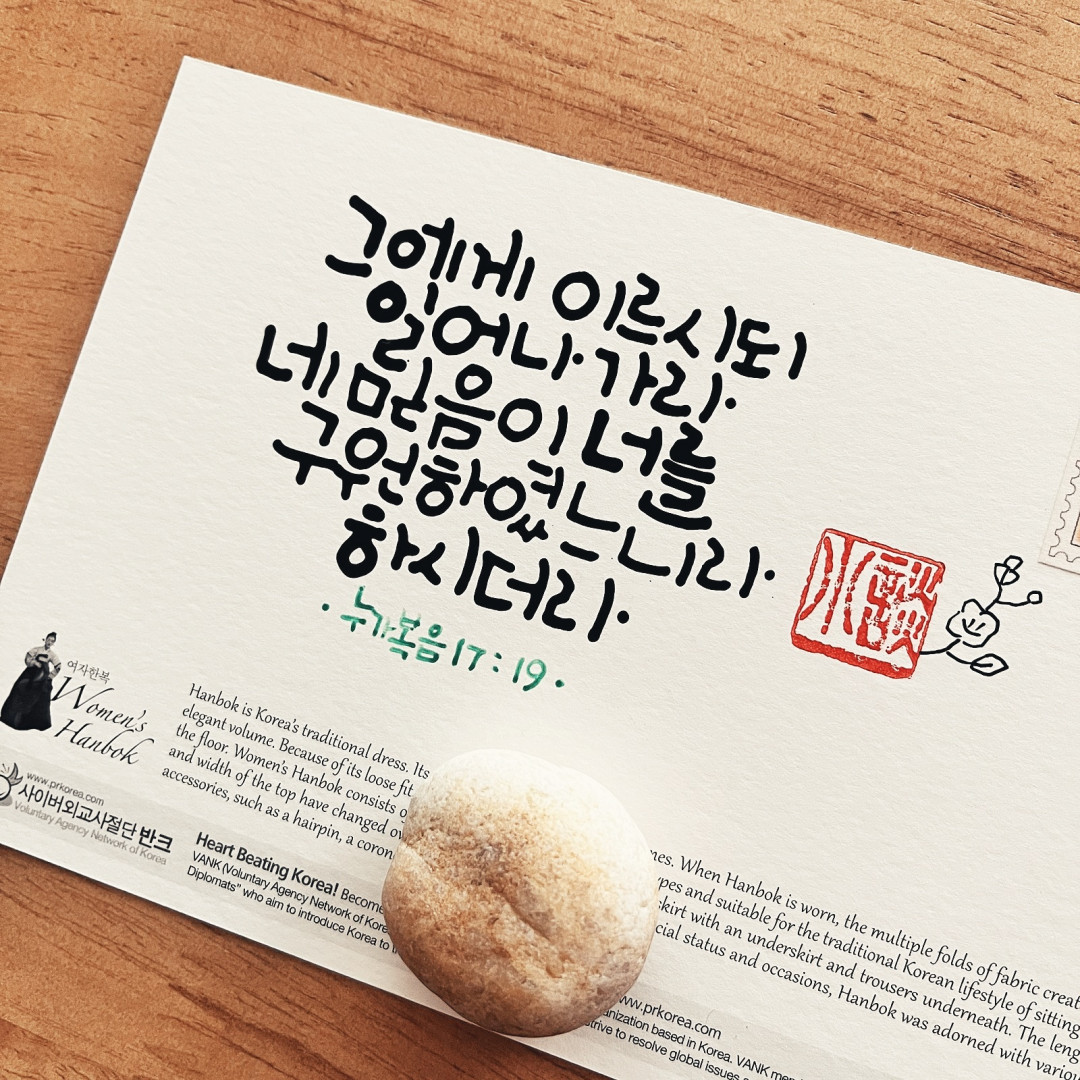 그에게 이르시되
일어나·가라·
네 믿음이 너를
구원하였느니라·
하시더라·
·누가복음 17:19·
여자한복
Women's
Hanbok
www.prkorea.com
사이버외교사절단 반크
Voluntary Agency Network of Korea
Hanbok is Korea's traditional dress. Its
elegant volume. Because of its loose fit
the floor. Women's Hanbok consists
and width of the top have changed
accessories, such as a hairpin, a
Heart Beating Korea! Become
VANK (Voluntary Agency Network of
Diplomats" who aim to introduce Korea to
When Hanbok is worn, the multiple folds of fabric
and suitable for the traditional Korean lifestyle of sitting
skirt with an underskirt and trousers underneath. The
status and occasions, Hanbok was adorned with
www.prkorea.com
based in Korea. VANK
strive to resolve global issues